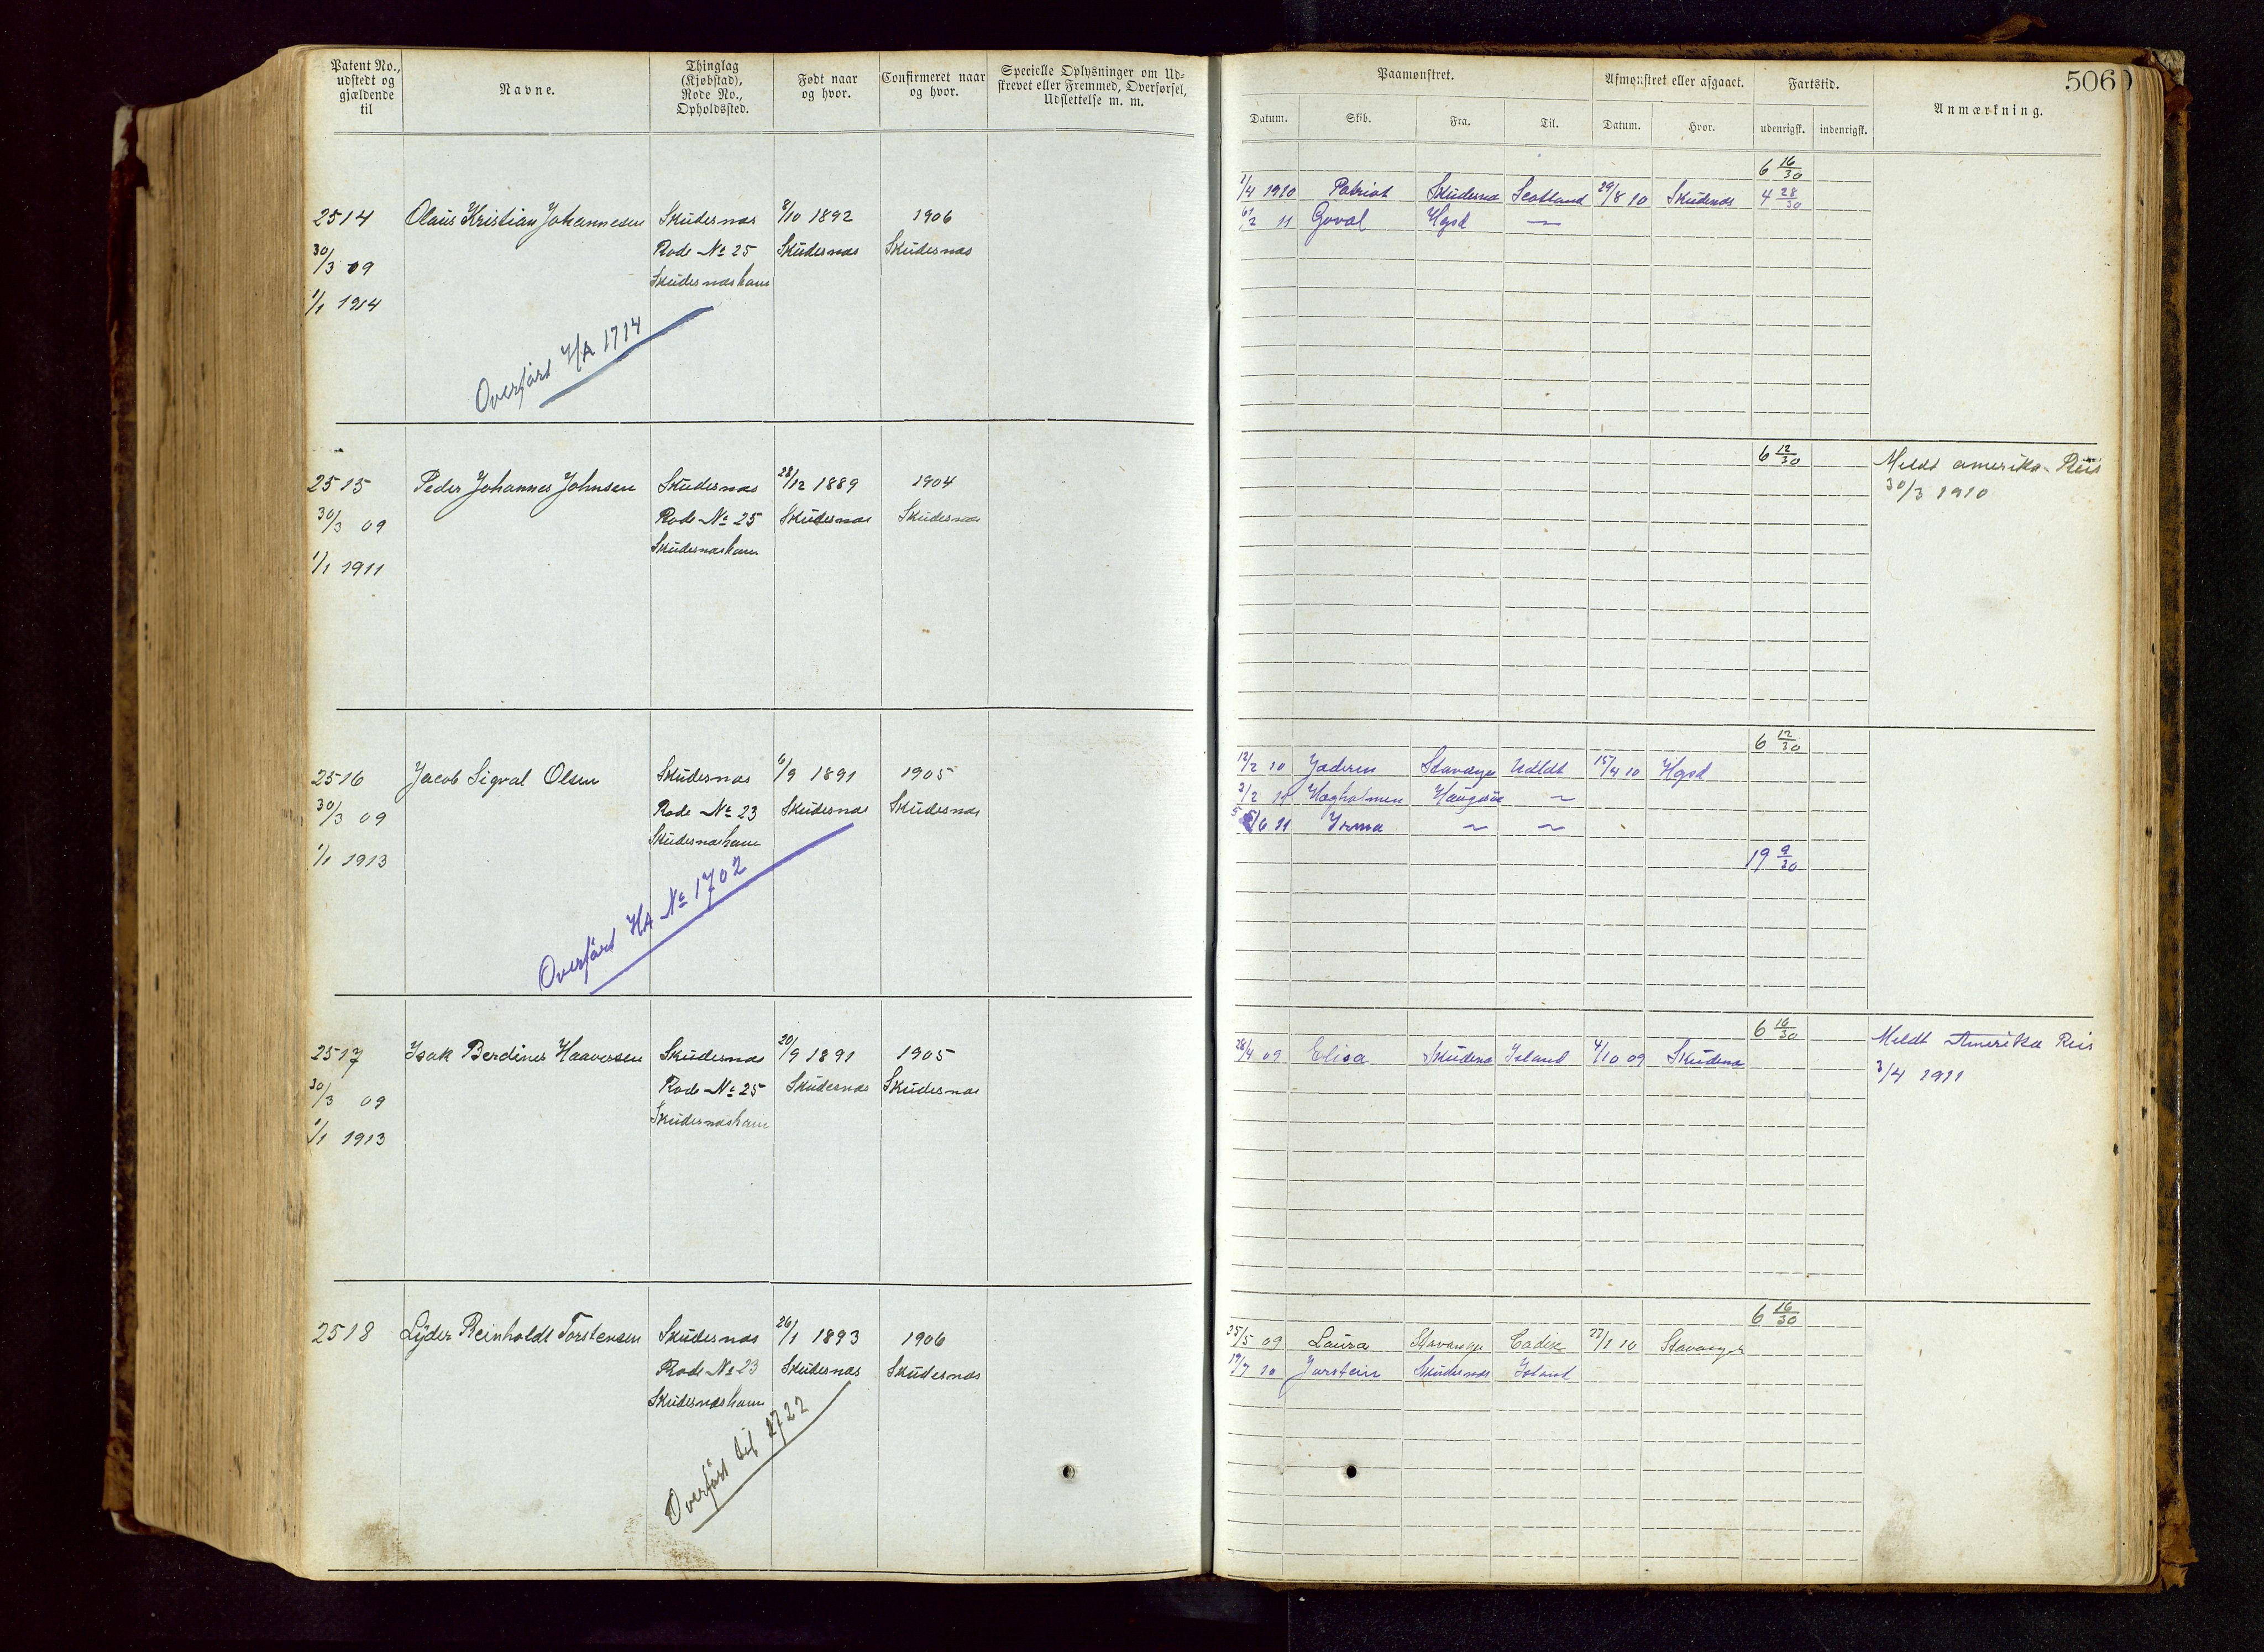 Patent No.,
udstedt og
gjældende
til
Navne.
Thinglag
(Kjøbstad),
Rode No.,
Opholdssted.
Født naar
og hvor.
Confirmeret naar
og hvor.
Specielle Oplysninger om Ud-
skrevet eller Fremmed, Overførsel,
Udslettelse m. m.
2514 Olaus Kristian Johannesen Skudesnæs 8/10 1892 1906
30/3 09 Rode No 25 Skudesnæs Skudesnæs
Skudesnæshavn
1/1 1914
Overført H/A 1714
2515 Peder Johannes Johnsen Skudesnæs 28/12 1889 1904
30/3 09 Rode No 25 Skudesnæs Skudesnæs
Skudesnæshavn
1/1 1911
2516 Jacob Sigval Olsen Skudesnæs 6/9 1891 1905
30/3 09 Rode No 23 Skudesnæs Skudesnæs
Skudesnæshavn
1/1 1913
Overført H/A No 1702
2517 Isak Berdines Haaversen Skudesnæs 20/9 1891 1905
30/3 09 Rode No 25 Skudesnæs Skudesnæs
Skudesnæshavn
1/1 1913
2518 Lyder Reinholdt Torstensen Skudesnæs 26/1 1893 1906
Rode No 23 Skudesnæs Skudesnæs
Skudesnæshavn
Overført til 2722
506
Paamønstret.
Afmønstret eller afgaaet.
Fartstid.
Anmærkning.
Datum. Skib. Fra. Til. Datum. Hvor. udenrigsk. indenrigsk.
6 16/30
1/4 1910 Patriot Skudesnæs Scotland 29/8 10 Skudenæs 4 28/30
6/2 11 Goval Hgsd —
6 12/30 Meldt amerika Reis
30/3 1910
6 12/30
12/2 10 Jæderen Stavanger Udldt 15/4 10 Hgsd
2/2 11 Høgholmen Haugesu ~
5/6 11 Irma ~ ~
19 9/30
6 16/30 Meldt Amerika Reis
28/4 09 Elisa Skudenæs Island 4/10 09 Skudenæs
3/4 1911
6 16/30
25/5 09 Laura Stavanger Cadix 22/1 10 Stavanger
19/7 10 Jarstein Skudesnæs Island